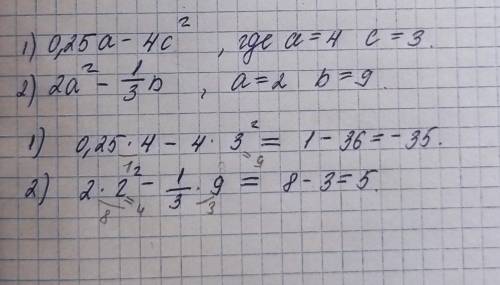 1) 0,25a - 4c² , где a = 4 c = 3.
2) 2a² - 1/3 b , a = 2 b = 9.
1) 0,25 · 4 - 4 · 3² = 1 - 36 = -35.
1 =9
2) 2 · 2² - 1/3 · 9 = 8 - 3 = 5.
8 =4 3